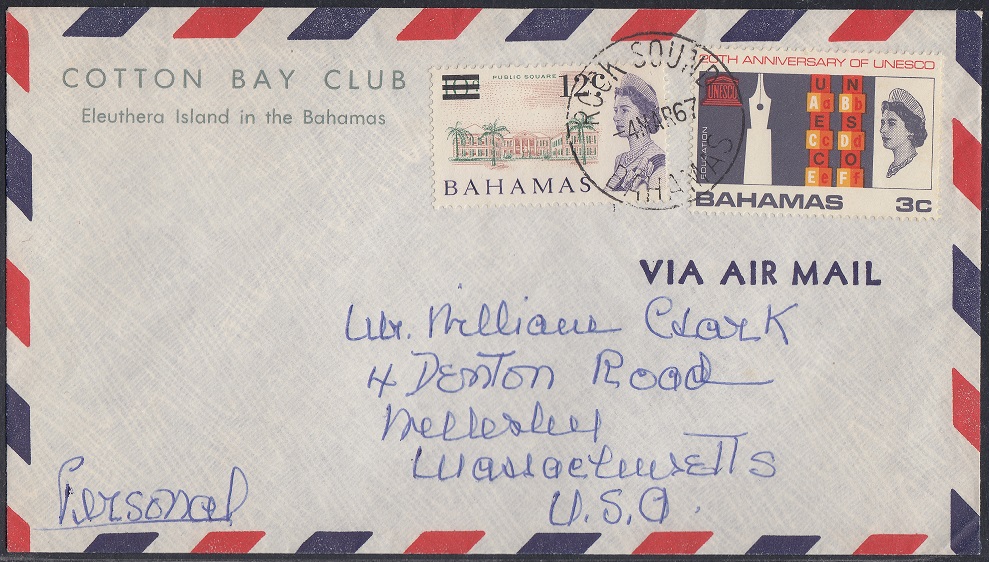 COTTON BAY CLUB
Eleuthera Island in the Bahamas
PUBLIC SQUARE
12c
BAHAMAS
ROCK SOUND
4 MAR 67
BAHAMAS
20TH ANNIVERSARY OF UNESCO
UNESCO
EDUCATION
U N
A a B b
E S
C c D d
C O
E e F f
BAHAMAS 3c
VIA AIR MAIL
Mr. William Clark
4 Denton Road
Wellesley
Massachusetts
U.S.A.
Personal